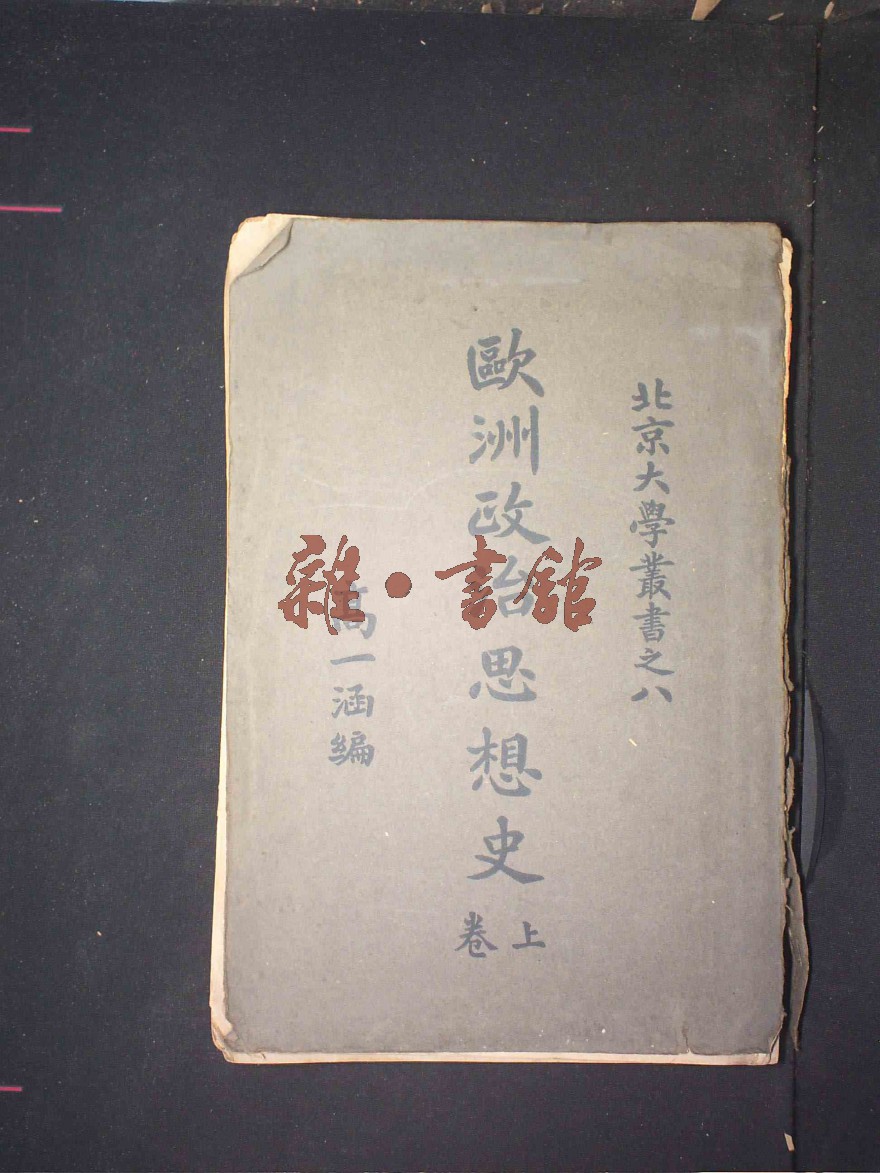 北京大學叢書之八
歐洲政治思想史
上卷
高一涵編
雜・書館